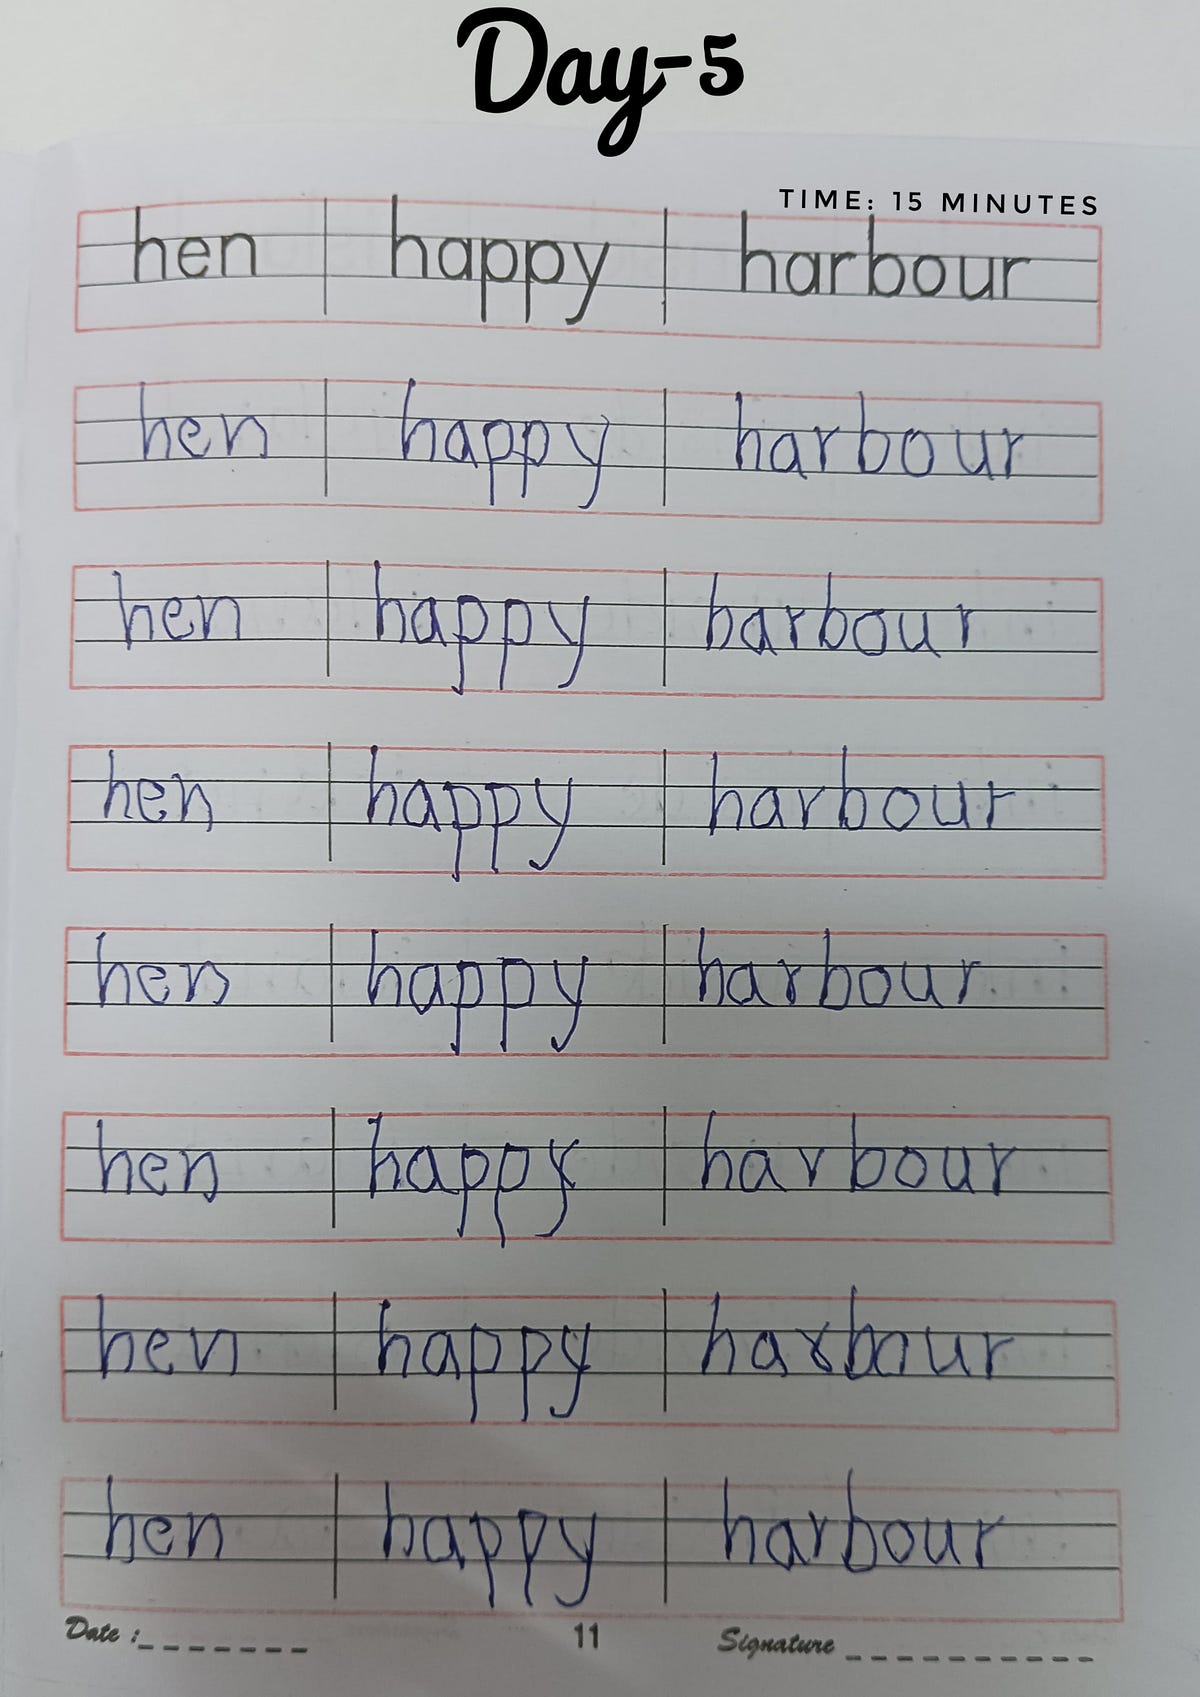 Day-5
TIME: 15 MINUTES
hen happy harbour
hen happy harbour
hen happy harbour
hen happy harbour
hen happy harbour
hen happy harbour
hen happy harbour
hen happy harbour
Date :_______ 11 Signature __________